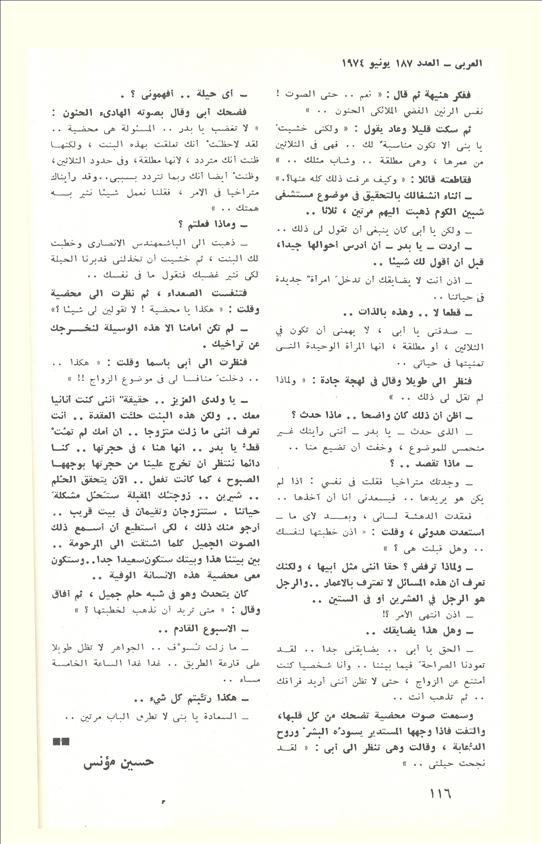 العربي – العدد ١٨٧ يونيو ١٩٧٤
ففكر هنيهة ثم قال : « نعم .. حتى الصوت !
نفس الرنين الفضي الملائكي الحنون .. »
ثم سكت قليلا وعاد يقول : « ولكني خشيت
يا بني ألا تكون مناسبة لك .. فهي في الثلاثين
من عمرها ، وهي مطلقة .. وشاب مثلك .. »
فقاطعته قائلا : « وكيف عرفت ذلك كله عنها؟. »
– أثناء انشغالك بالتحقيق في موضوع مستشفى
شبين الكوم ذهبت اليهم مرتين ، ثلاثا ..
– ولكن يا أبي كان ينبغي أن تقول لي ذلك ..
– أردت – يا بدر – أن أدرس أحوالها جيدا،
قبل أن أقول لك شيئا ..
– اذن أنت لا يضايقك أن تدخل امرأة جديدة
في حياتنا ..
– قطعا لا .. وهذه بالذات ..
– صدقني يا أبي ، لا يهمني أن تكون في
الثلاثين ، أو مطلقة ، انها المرأة الوحيدة التي
تمنيتها في حياتي ..
فنظر الى طويلا وقال في لهجة جادة : « ولماذا
لم تقل لي ذلك .. »
– أظن أن ذلك كان واضحا .. ماذا حدث ؟
– الذي حدث – يا بدر – أنني رأيتك غير
متحمس للموضوع ، وخفت أن تضيع منا ..
– ماذا تقصد .. ؟
– وجدتك متراخيا فقلت في نفسي : اذا لم
يكن هو يريدها .. فيسعدني أنا أن آخذها ..
فعقدت الدهشة لساني ، وبعد لأي ما –
استعدت هدوئي ، وقلت : « اذن خطبتها لنفسك
.. وهل قبلت هي ؟ »
– ولماذا ترفض ؟ حقا انني مثل أبيها ، ولكنك
تعرف أن هذه المسائل لا تعترف بالاعمار ..والرجل
هو الرجل في العشرين أو في الستين ..
– اذن انتهى الأمر ؟!
– وهل هذا يضايقك ..
– الحق يا أبي .. يضايقني جدا .. لقد
تعودنا الصراحة فيما بيننا .. وأنا شخصيا كنت
أمتنع عن الزواج ، حتى لا تظن أنني أريد فراقك
.. ثم تذهب أنت ..
وسمعت صوت محضية تضحك من كل قلبها،
والتفت فاذا وجهها المستدير يسوده البشر وروح
الدعابة ، وقالت وهي تنظر الى أبي : « لقد
نجحت حيلتي .. »
– أي حيلة .. أفهموني ؟ .
فضحك أبي وقال بصوته الهادىء الحنون :
« لا تغضب يا بدر .. المسئولة هي محضية ..
لقد لاحظت أنك تعلقت بهذه البنت ، ولكنها
ظنت أنك متردد ، لأنها مطلقة، وفي حدود الثلاثين،
وظنت أيضا أنك ربما تتردد بسببي..وقد رأيناك
متراخيا في الأمر ، فقلنا نعمل شيئا نثير به
همتك .. »
– وماذا فعلتم ؟
– ذهبت الى الباشمهندس الانصارى وخطبت
لك البنت ، ثم خشيت أن تخذلني فدبرنا الحيلة
لكي نثير غضبك فتقول ما في نفسك ..
فتنفست الصعداء ، ثم نظرت الى محضية
وقلت : « هكذا يا محضية ! لا تقولين لي شيئا ؟»
– لم تكن أمامنا الا هذه الوسيلة لنخرجك
عن تراخيك .
فنظرت الى أبي باسما وقلت : « هكذا ..
.. دخلت منافسا لي في موضوع الزواج !! »
– يا ولدى العزيز .. حقيقة أنني كنت أنانيا
معك .. ولكن هذه البنت حلت العقدة .. أنت
تعرف أنني ما زلت متزوجا .. ان أمك لم تمت
قط يا بدر .. انها هنا ، في حجرتها .. كنا
دائما ننتظر أن تخرج علينا من حجرتها بوجهها
الصبوح ، كما كانت تفعل .. الآن يتحقق الحلم
.. شيرين .. زوجتك المقبلة ستحل مشكلة
حياتنا . ستتزوجان وتقيمان في بيت قريب ..
أرجو منك ذلك ، لكى أستطيع أن أسمع ذلك
الصوت الجميل كلما اشتقت الى المرحومة ..
بين بيتنا هذا وبيتك ستكون سعيدا جدا..وستكون
معي محضية هذه الانسانة الوفية ..
كان يتحدث وهو في شبه حلم جميل ، ثم أفاق
وقال : « متى تريد أن نذهب لخطبتها ؟ »
– الأسبوع القادم ..
– ما زلت تسوف .. الجواهر لا تظل طويلا
على قارعة الطريق .. غدا غدا الساعة الخامسة
مساء ..
– هكذا رتبتم كل شيء ..
– السعادة يا بني لا تطرق الباب مرتين ..
حسين مؤنس
١١٦